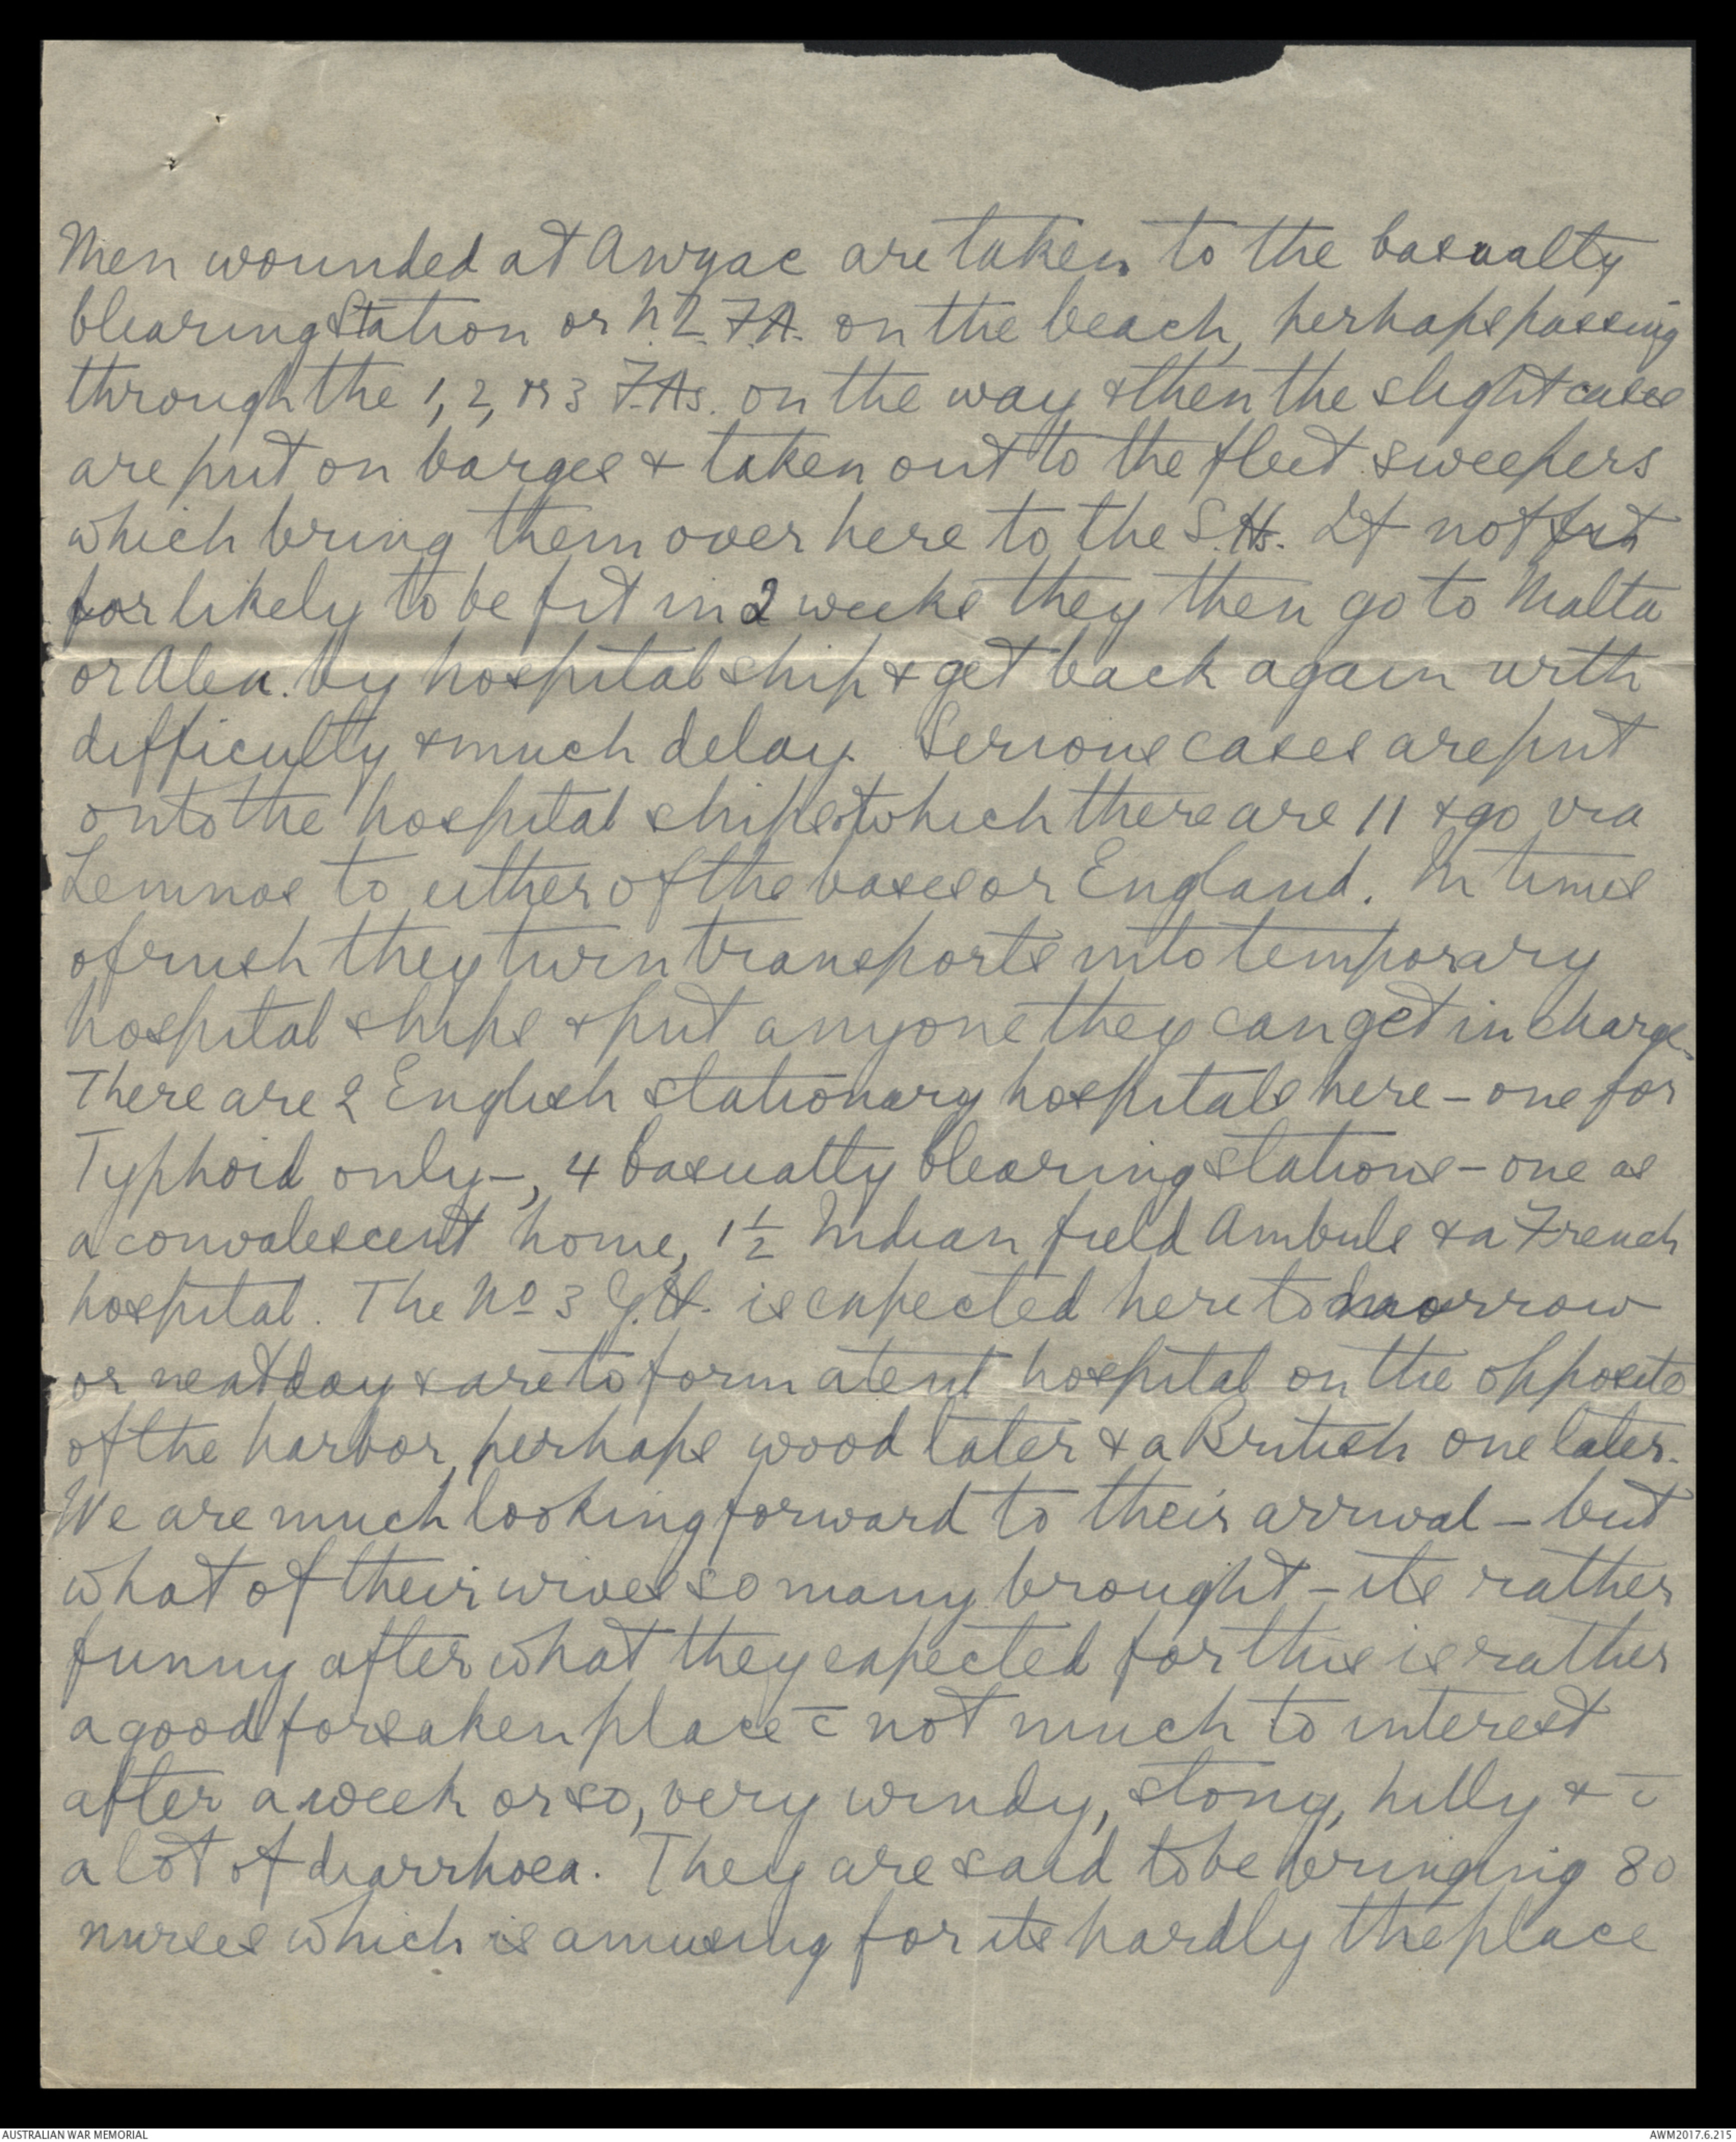 Men wounded at Anzac are taken to the Casualty
Clearing Station or N.Z. F.A. on the beach, perhaps passing
through the 1, 2, or 3 F.As. on the way & then the slight cases
are put on barges & taken out to the fleet sweepers
which bring them over here to the S.Hs. If not fit
for likely to be fit in 2 weeks they then go to Malta
or Alex. by hospital ship & get back again with
difficulty & much delay. Serious cases are put
onto the hospital ships of which there are 11 & go via
Lemnos to either of the bases or England. In times
of rush they turn transports into temporary
hospital ships & put anyone they can get in charge.
There are 2 English stationary hospitals here - one for
Typhoid only -, 4 Casualty Clearing stations - one as
a convalescent home, 1½ Indian field Ambuls & a French
hospital. The No 3 G.H. is expected here tomorrow
or next day & are to form a tent hospital on the opposite
of the harbor, perhaps wood later & a British one later.
We are much looking forward to their arrival - but
what of their wives so many brought - its rather
funny after what they expected for this is rather
a good forsaken place c̄ not much to interest
after a week or so, very windy, stony, hilly & c̄
a lot of diarrhoea. They are said to be bringing 80
nurses which is amusing for its hardly the place
AUSTRALIAN WAR MEMORIAL
AWM2017.6.215